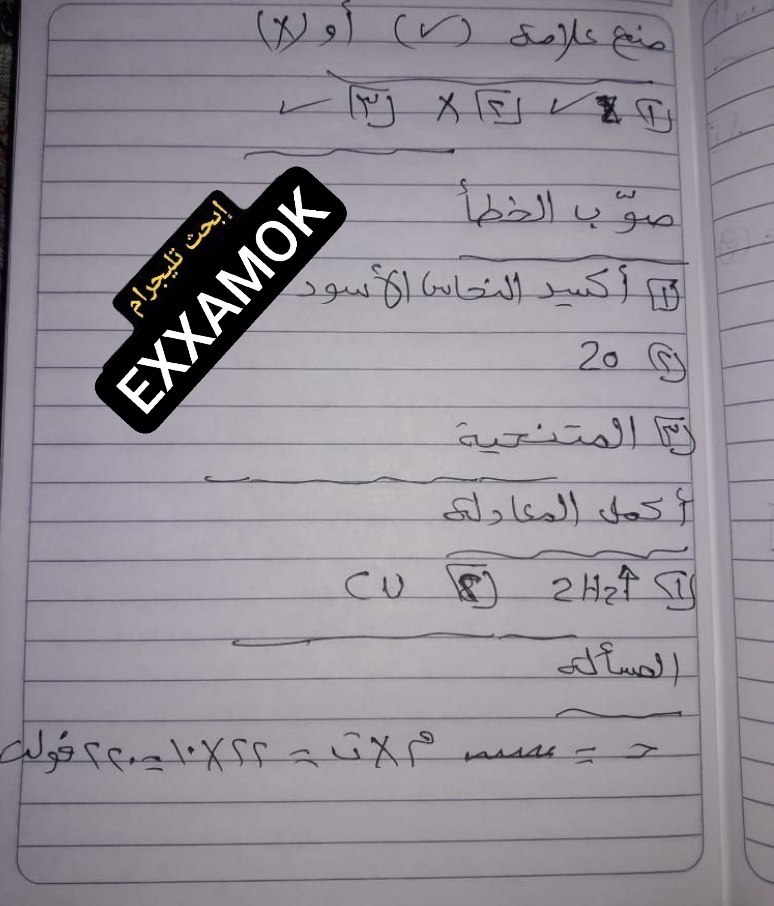 ضع علامة (✓) أو (X)
[١] ✓ [٢] X [٣] ✓
صوّب الخطأ
[١] أكسيد النحاس الأسود
[٢] 20
[٣] المتنحية
أكمل المعادلة
[١] 2H₂↑ [٢] Cu
المسألة
جـ = م X ت = ٢٢ X ١٠ = ٢٢٠ فولت
إبحث تليجرام
EXXAMOK